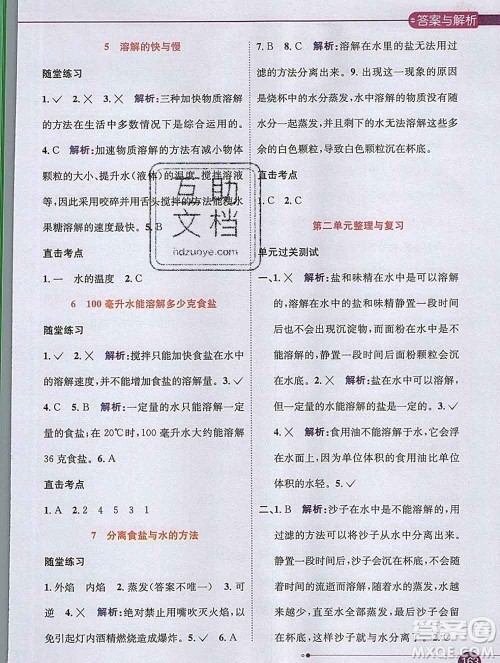 答案与解析
5 溶解的快与慢
随堂练习
1. ✓ 2. ✓ 3. × 解析:三种加快物质溶解
的方法在生活中多数情况下是综合运用的。
4. C 解析:加速物质溶解的方法有减小物体
颗粒的大小、提升水(液体)的温度、搅拌溶液
等,因此采取研碎、升温、搅拌的方法能使水
果糖溶解的速度最快。 5. B
直击考点
1. 一 水的温度 2. C
6 100毫升水能溶解多少克食盐
随堂练习
1. ✓ 2. × 解析:搅拌只能加快食盐在水中
的溶解速度,不能增加其溶解量。 3. ✓
4. C 5. B 解析:一定量的水只能溶解一定
量的食盐;在20℃时,100毫升水大约能溶解
36克食盐。 6. A
直击考点
1. A 2. 2 4 5 3 1
7 分离食盐与水的方法
随堂练习
1. 外焰 内焰 2. 蒸发(答案不唯一) 3. ✓
4. × 解析:禁止使用嘴吹灭火焰,以
免引起灯内酒精燃烧造成爆炸。 5. A 6. A
7. B 8. C 解析:溶解在水里的盐无法用过
滤的方法分离出来。 9. 出现这个现象的原因
是烧杯中的水分蒸发,水分减少,剩下的水
溶解不了剩余的食盐,就会有一部分多余
的白色颗粒,导致白色颗粒沉在杯底。
直击考点
1. B 2. ✓
第二单元整理与复习
单元过关测试
一、1. × 解析:盐和味精在水中能溶解,所
以在水中的盐和味精静置一段时间后
不会出现沉淀物,而面粉在水中不
易溶解,所以水中的面粉静置一段时
间后,杯底会有面粉颗粒沉淀。 2. ✓
3. ✓
4. × 解析:食用油不能溶解于水,静置
一段时间后,食用油会浮在水面上,是
因为单位体积的食用油比单位体积
的水轻。
二、1. × 解析:沙子在水中是不能溶解的。
刚开始放入水中时可以看到沙子在水
中的流动。随着时间流逝,所有的沙
子会沉入杯底,因此不能说沙子溶解
了。 2. ✓ 3. ✓
互助
文档
hdzuoye.com
答案圈
MXQE.COM